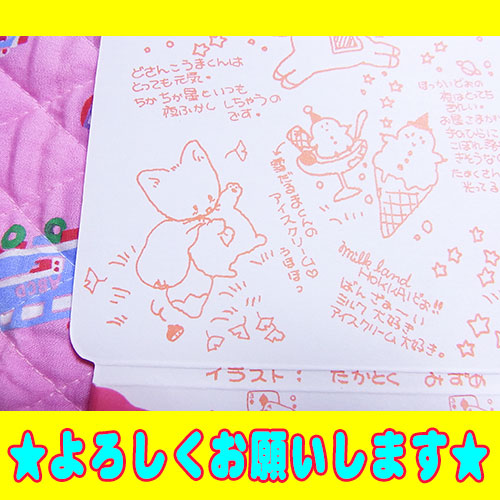 どさんこうまくんは
とっても元気。
ちかちか星といつも
夜ふかし しちゃうの
です。
ほっかいどおの
夜はとても
お星さまが
手のひらに
こぼれ落
きそうな
たくさん
光ってる
アイスクリーム♡
milk land
HOKKAIどぉ!!
ばんざぁーい
ミルク大好き
アイスクリーム大好き。
イラスト: たかとく みずめ
★よろしくお願いします★